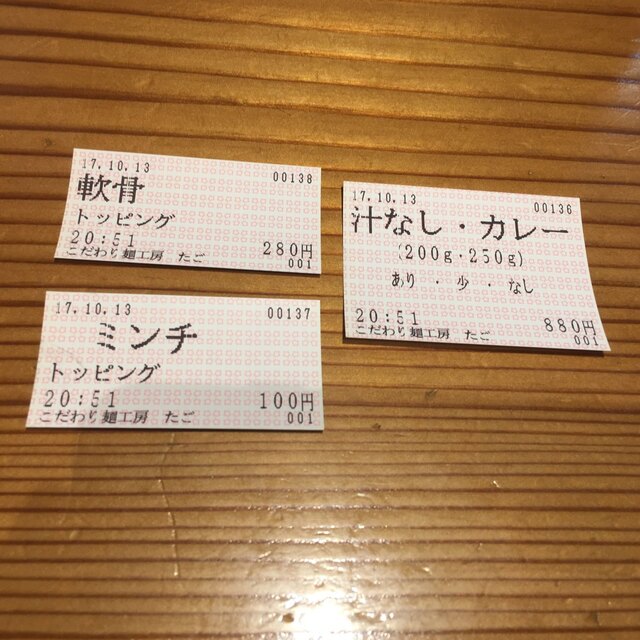 17.10.13 00138
軟骨
トッピング
20:51 280円
こだわり麺工房 たご 001
17.10.13 00137
ミンチ
トッピング
20:51 100円
こだわり麺工房 たご 001
17.10.13 00136
汁なし・カレー
(200g・250g)
あり ・ 少 ・ なし
20:51 880円
こだわり麺工房 たご 001